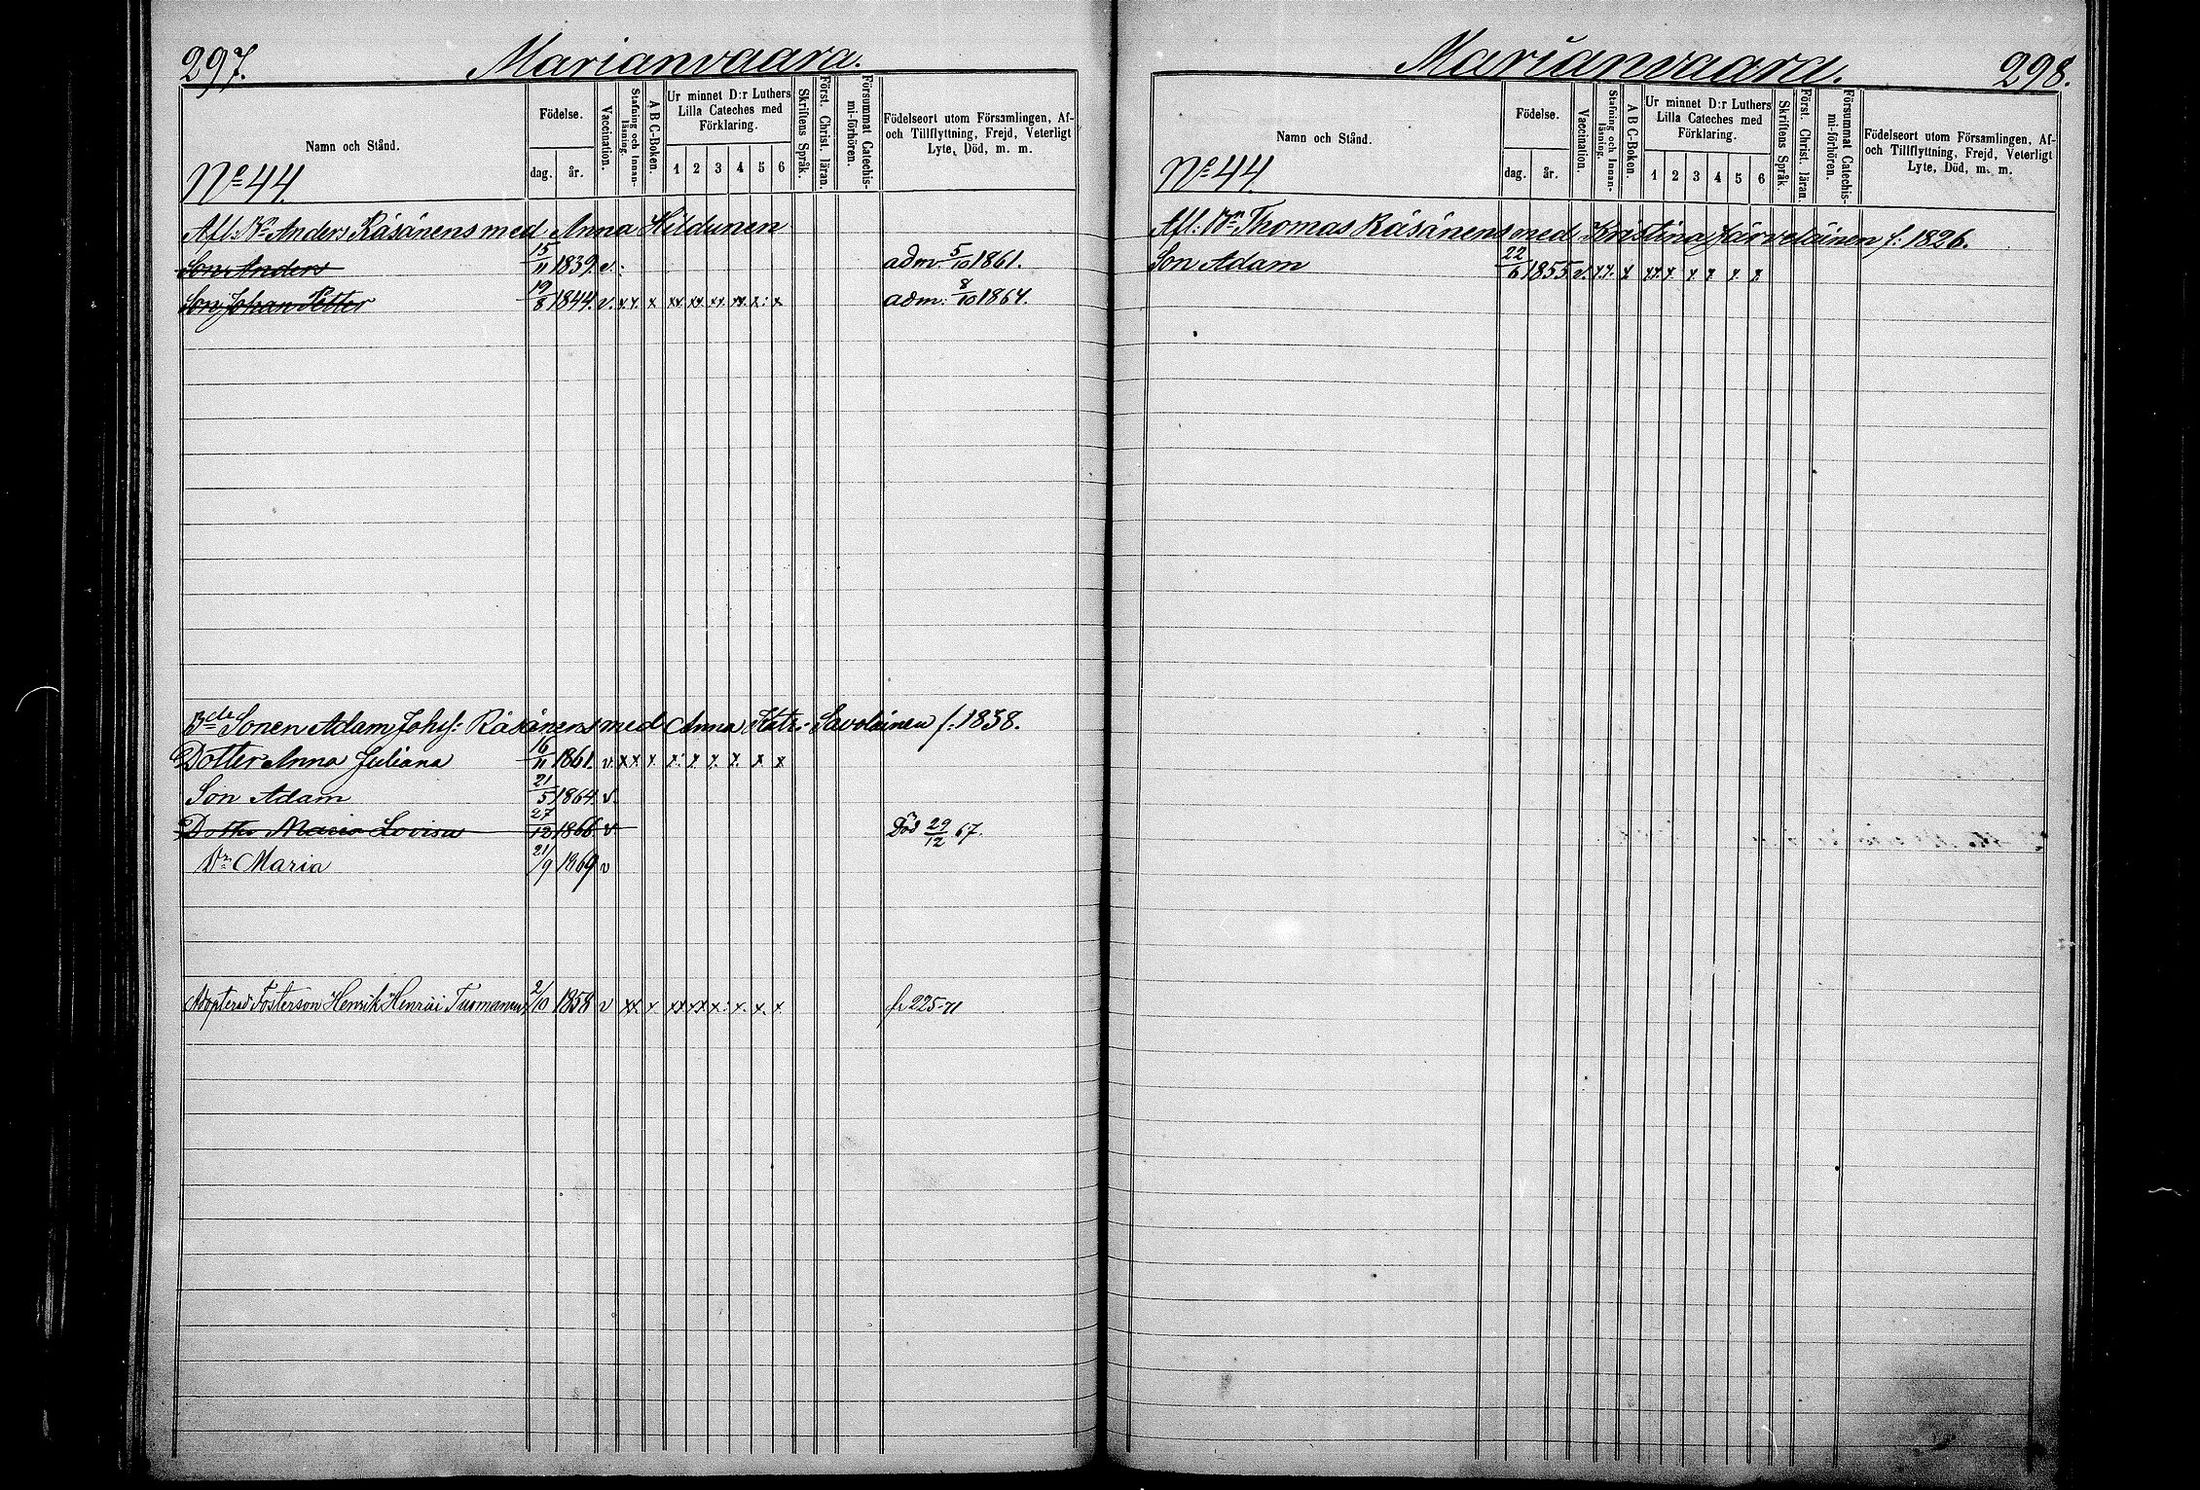 297. Marianvaara.
Namn och Stånd.
Födelse.
dag. år.
Vaccination.
Stafning och Innan-läsning.
A B C-Boken.
Ur minnet D:r Luthers Lilla Cateches med Förklaring.
1 2 3 4 5 6
Skriftens Språk.
Först. Christ. läran.
Försummat Catechis-mi-förhören.
Födelseort utom Församlingen, Af-
och Tillflyttning, Frejd, Veterligt
Lyte, Död, m. m.
No 44.
Afl: Bn Anders Räsänens med Anna Hildunen
Son Anders 15/11 1839. v. adm. 5/10 1861.
Son Johan Petter 19/8 1844. v. x x. x xx xx xx xx x: x adm: 8/10 1864.
Bde Sonen Adam Johs: Räsänens med Anna Katr: Savolainen f: 1838.
Dotter Anna Juliana 16/11 1861. v. x x. x x: x. x. x. x x
Son Adam 21/5 1864. v.
Dotter Maria Lovisa 27/12 1866 v Död 29/12 67.
Dr Maria 21/9 1869 v
Adopterad Fosterson Henrik Henrici Tuomainen 2/10 1858 v xx. x. xx xx x: x. x. x fr 225-71
Marianvaara. 298.
Namn och Stånd.
Födelse.
dag. år.
Vaccination.
Stafning och Innan-läsning.
A B C-Boken.
Ur minnet D:r Luthers
Lilla Cateches med
Förklaring.
1 2 3 4 5 6
Skriftens Språk.
Först. Christ. läran.
Försummat Catechis-mi-förhören.
Födelseort utom Församlingen, Af-
och Tillflyttning, Frejd, Veterligt
Lyte, Död, m. m.
No 44
Afl: Bn Thomas Räsänens med Kristina Järveläinen f: 1826.
Son Adam 22/6 1855 v. x x. x xx x x x x x